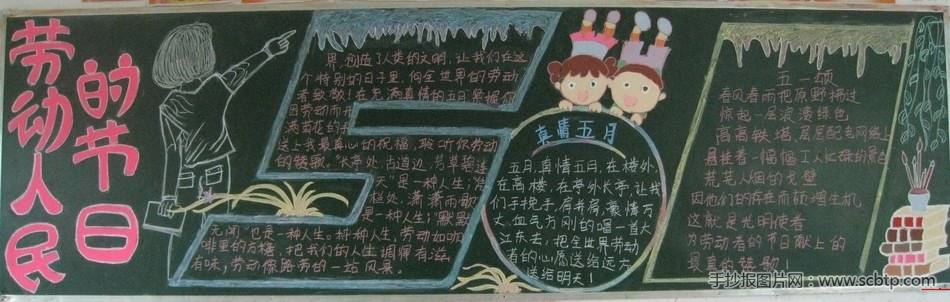 劳动人民
的节日
界,创造了人类的文明,让我们在这
个特别的日子里,向全世界的劳动
者致敬!在充满真情的五月紧握你
因劳动而
满
送上我最真心的祝福,聆听你劳动
的铙歌。"长亭处,古道边,芳草碧连
天"是一种人生;
处,潇潇雨
是一种人生;默默
无闻"也是一种人生。种种人生,劳动如咖
啡里的方糖,把我们的人生调得有滋
有味,劳动像路旁的一站风景。
真情五月
五月,真情五月,在楼外
在高楼,在亭外长亭,让我
们手挽手,肩并肩,豪情万
丈,血气方刚的唱一首大
江东去,把全世界劳动
者的心愿送给远方
送给明天!
五一颂
春风春雨把原野梳过
惊起一层浪漫绿色
高高铁塔,层层配电网络上
悬挂着一幅幅工人忙碌的景色
荒芜人烟的戈壁
因他们的存在而顿增生机
这就是光明使者
为劳动者的节日献上的
最真的铙歌!
手抄报图片网:www.scbtp.com